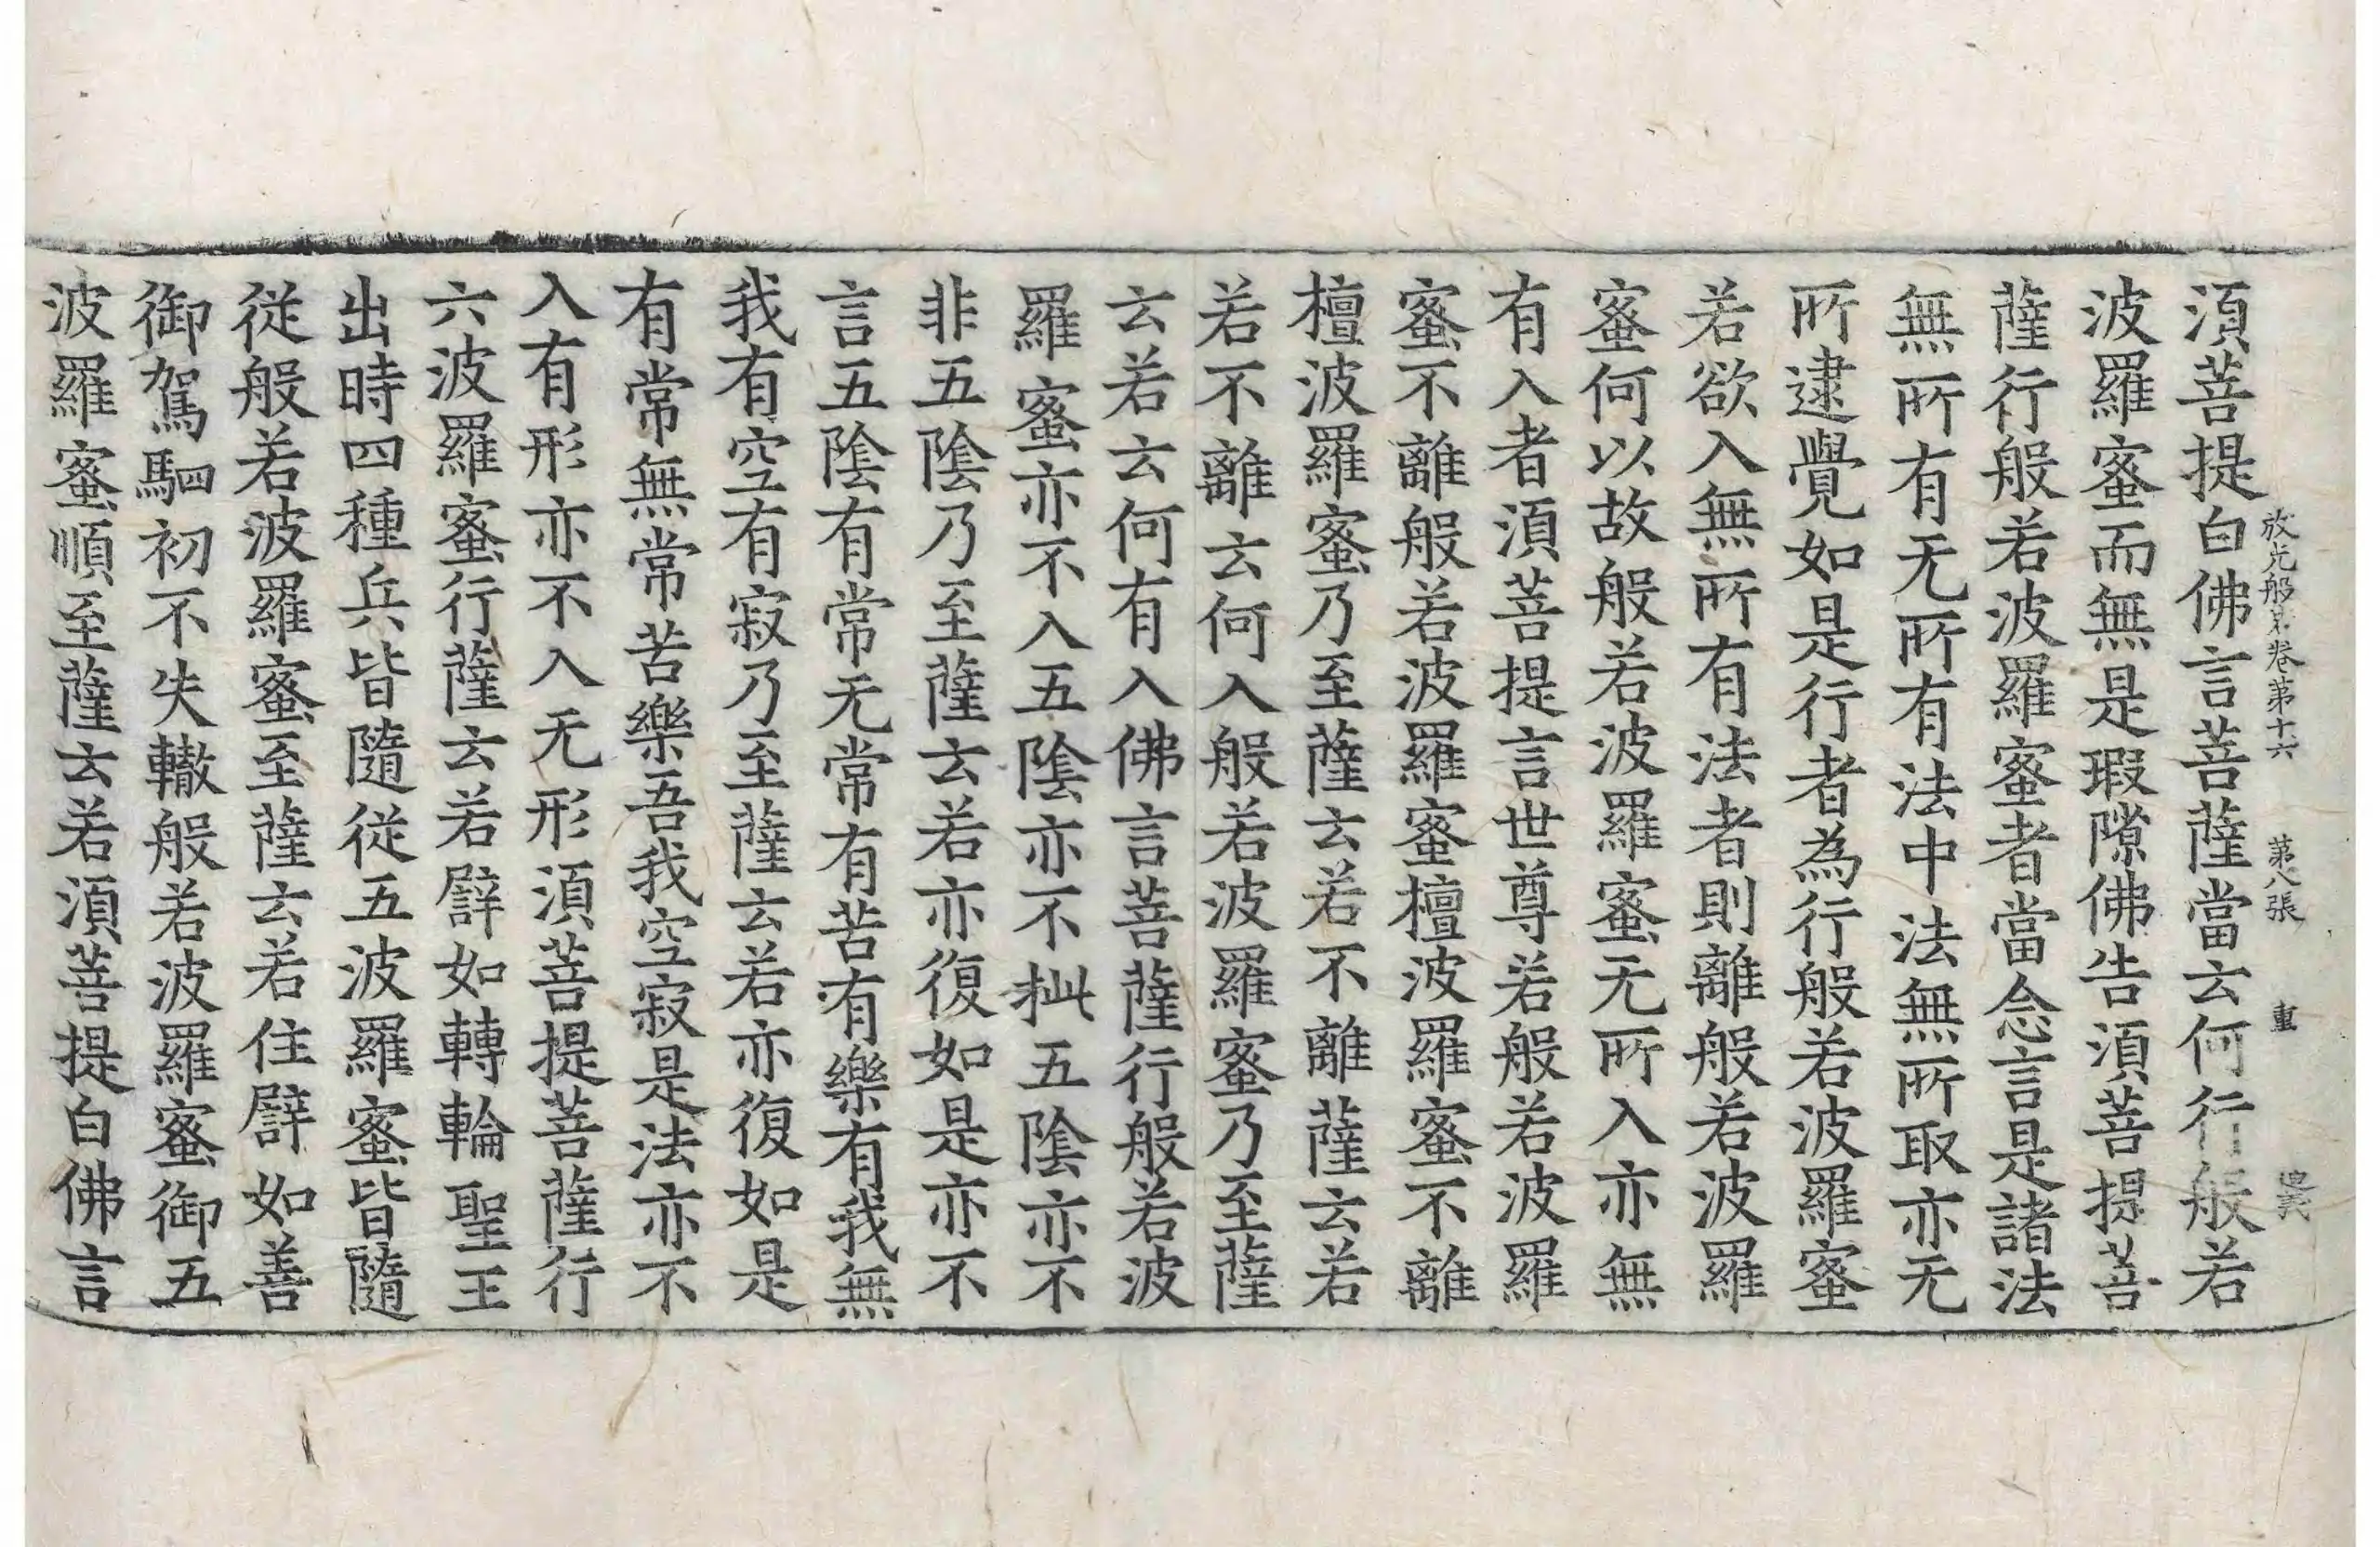 放光般若卷第十六 第八張 重
湏菩提白佛言菩薩當云何行般若
波羅蜜而無是瑕隙佛告湏菩提菩
薩行般若波羅蜜者當念言是諸法
無所有无所有法中法無所取亦无
所逮覺如是行者為行般若波羅蜜
若欲入無所有法者則離般若波羅
蜜何以故般若波羅蜜无所入亦無
有入者湏菩提言世尊若般若波羅
蜜不離般若波羅蜜檀波羅蜜不離
檀波羅蜜乃至薩云若不離薩云若
若不離云何入般若波羅蜜乃至薩
云若云何有入佛言菩薩行般若波
羅蜜亦不入五陰亦不摡五陰亦不
非五陰乃至薩云若亦復如是亦不
言五陰有常无常有苦有樂有我無
我有空有寂乃至薩云若亦復如是
有常無常苦樂吾我空寂是法亦不
入有形亦不入无形湏菩提菩薩行
六波羅蜜行薩云若譬如轉輪聖王
出時四種兵皆隨從五波羅蜜皆隨
從般若波羅蜜至薩云若住譬如善
御駕駟初不失轍般若波羅蜜御五
波羅蜜順至薩云若湏菩提白佛言